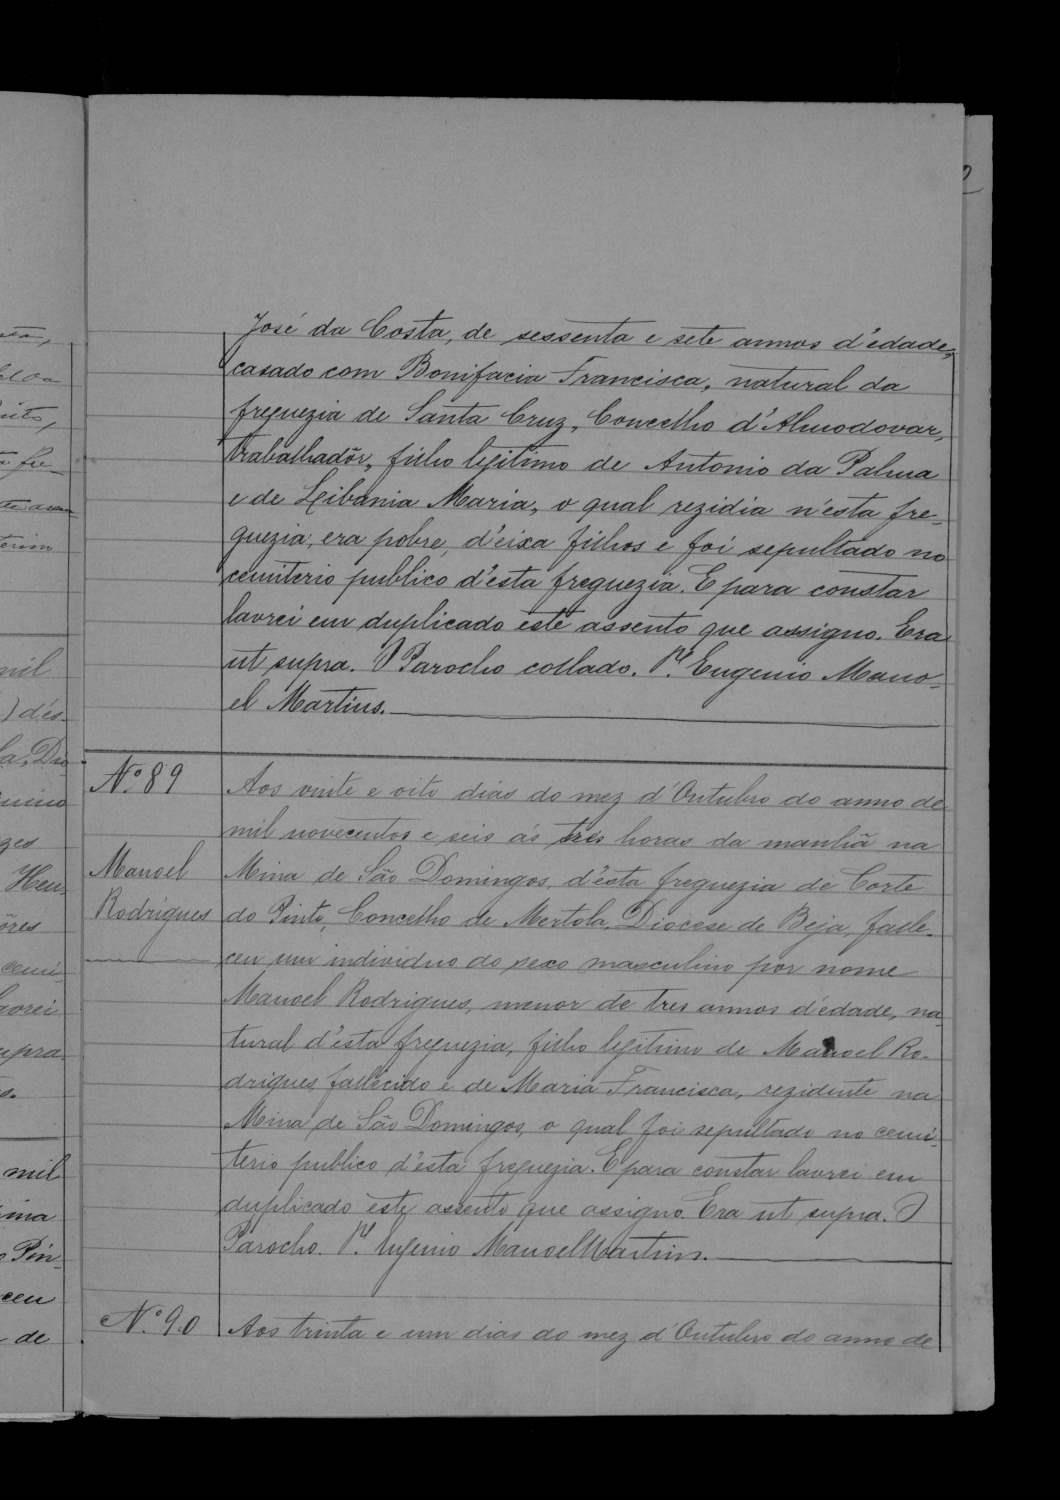 José da Costa, de sessenta e sete annos d'edade,
casado com Bonifacia Francisca, natural da
freguezia de Santa Cruz, Concelho d'Almodovar,
trabalhadôr, filho legitimo de Antonio da Palma
e de Libania Maria, o qual rezidia n'ésta fre-
guezia, era pobre, d'eixa filhos e foi sepultado no
cemiterio publico d'ésta freguezia. E para constar
lavrei em duplicado éste assento que assigno. Era
ut supra. O Parocho collado. Pe. Eugenio Mano-
el Martins.
Nº 89
Manoel
Rodrigues
Aos vinte e oito dias do mez d'Outubro do anno de
mil novecentos e seis ás tres horas da manhã na
Mina de São Domingos, d'ésta freguezia de Corte
do Pinto, Concelho de Mertola, Diocese de Beja, falle-
ceu um individuo do sexo masculino por nome
Manoel Rodrigues, menor de tres annos d'edade, na-
tural d'ésta freguezia, filho legitimo de Manoel Ro-
drigues fallecido e de Maria Francisca, rezidente na
Mina de São Domingos, o qual foi sepultado no cemi-
terio publico d'ésta freguezia. E para constar lavrei em
duplicado éste assento que assigno. Era ut supra. O
Parocho. Pe. Eugenio Manoel Martins.
Nº 90
Aos trinta e um dias do mez d'Outubro do anno de
mil
) dés-
Hen-
cemi-
lavrei
supra.
mil
Pin-
ceu
de